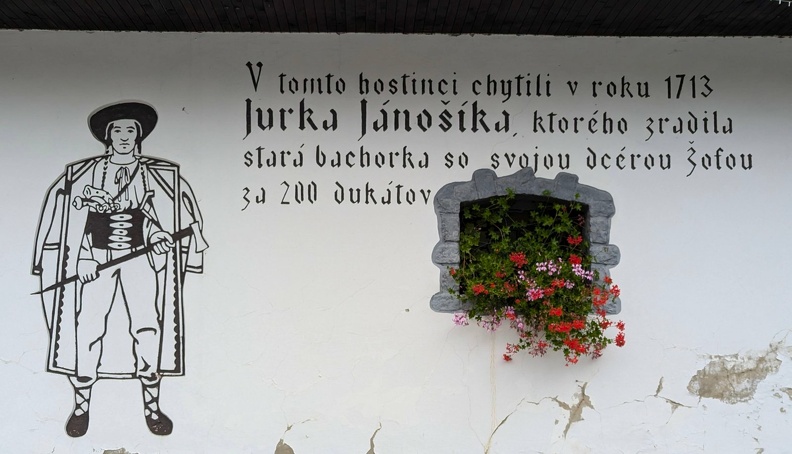 V tomto hostinci chytili v roku 1713
Jurka Jánošíka, ktorého zradila
stará bachorka so svojou dcérou Žofou
za 200 dukátov